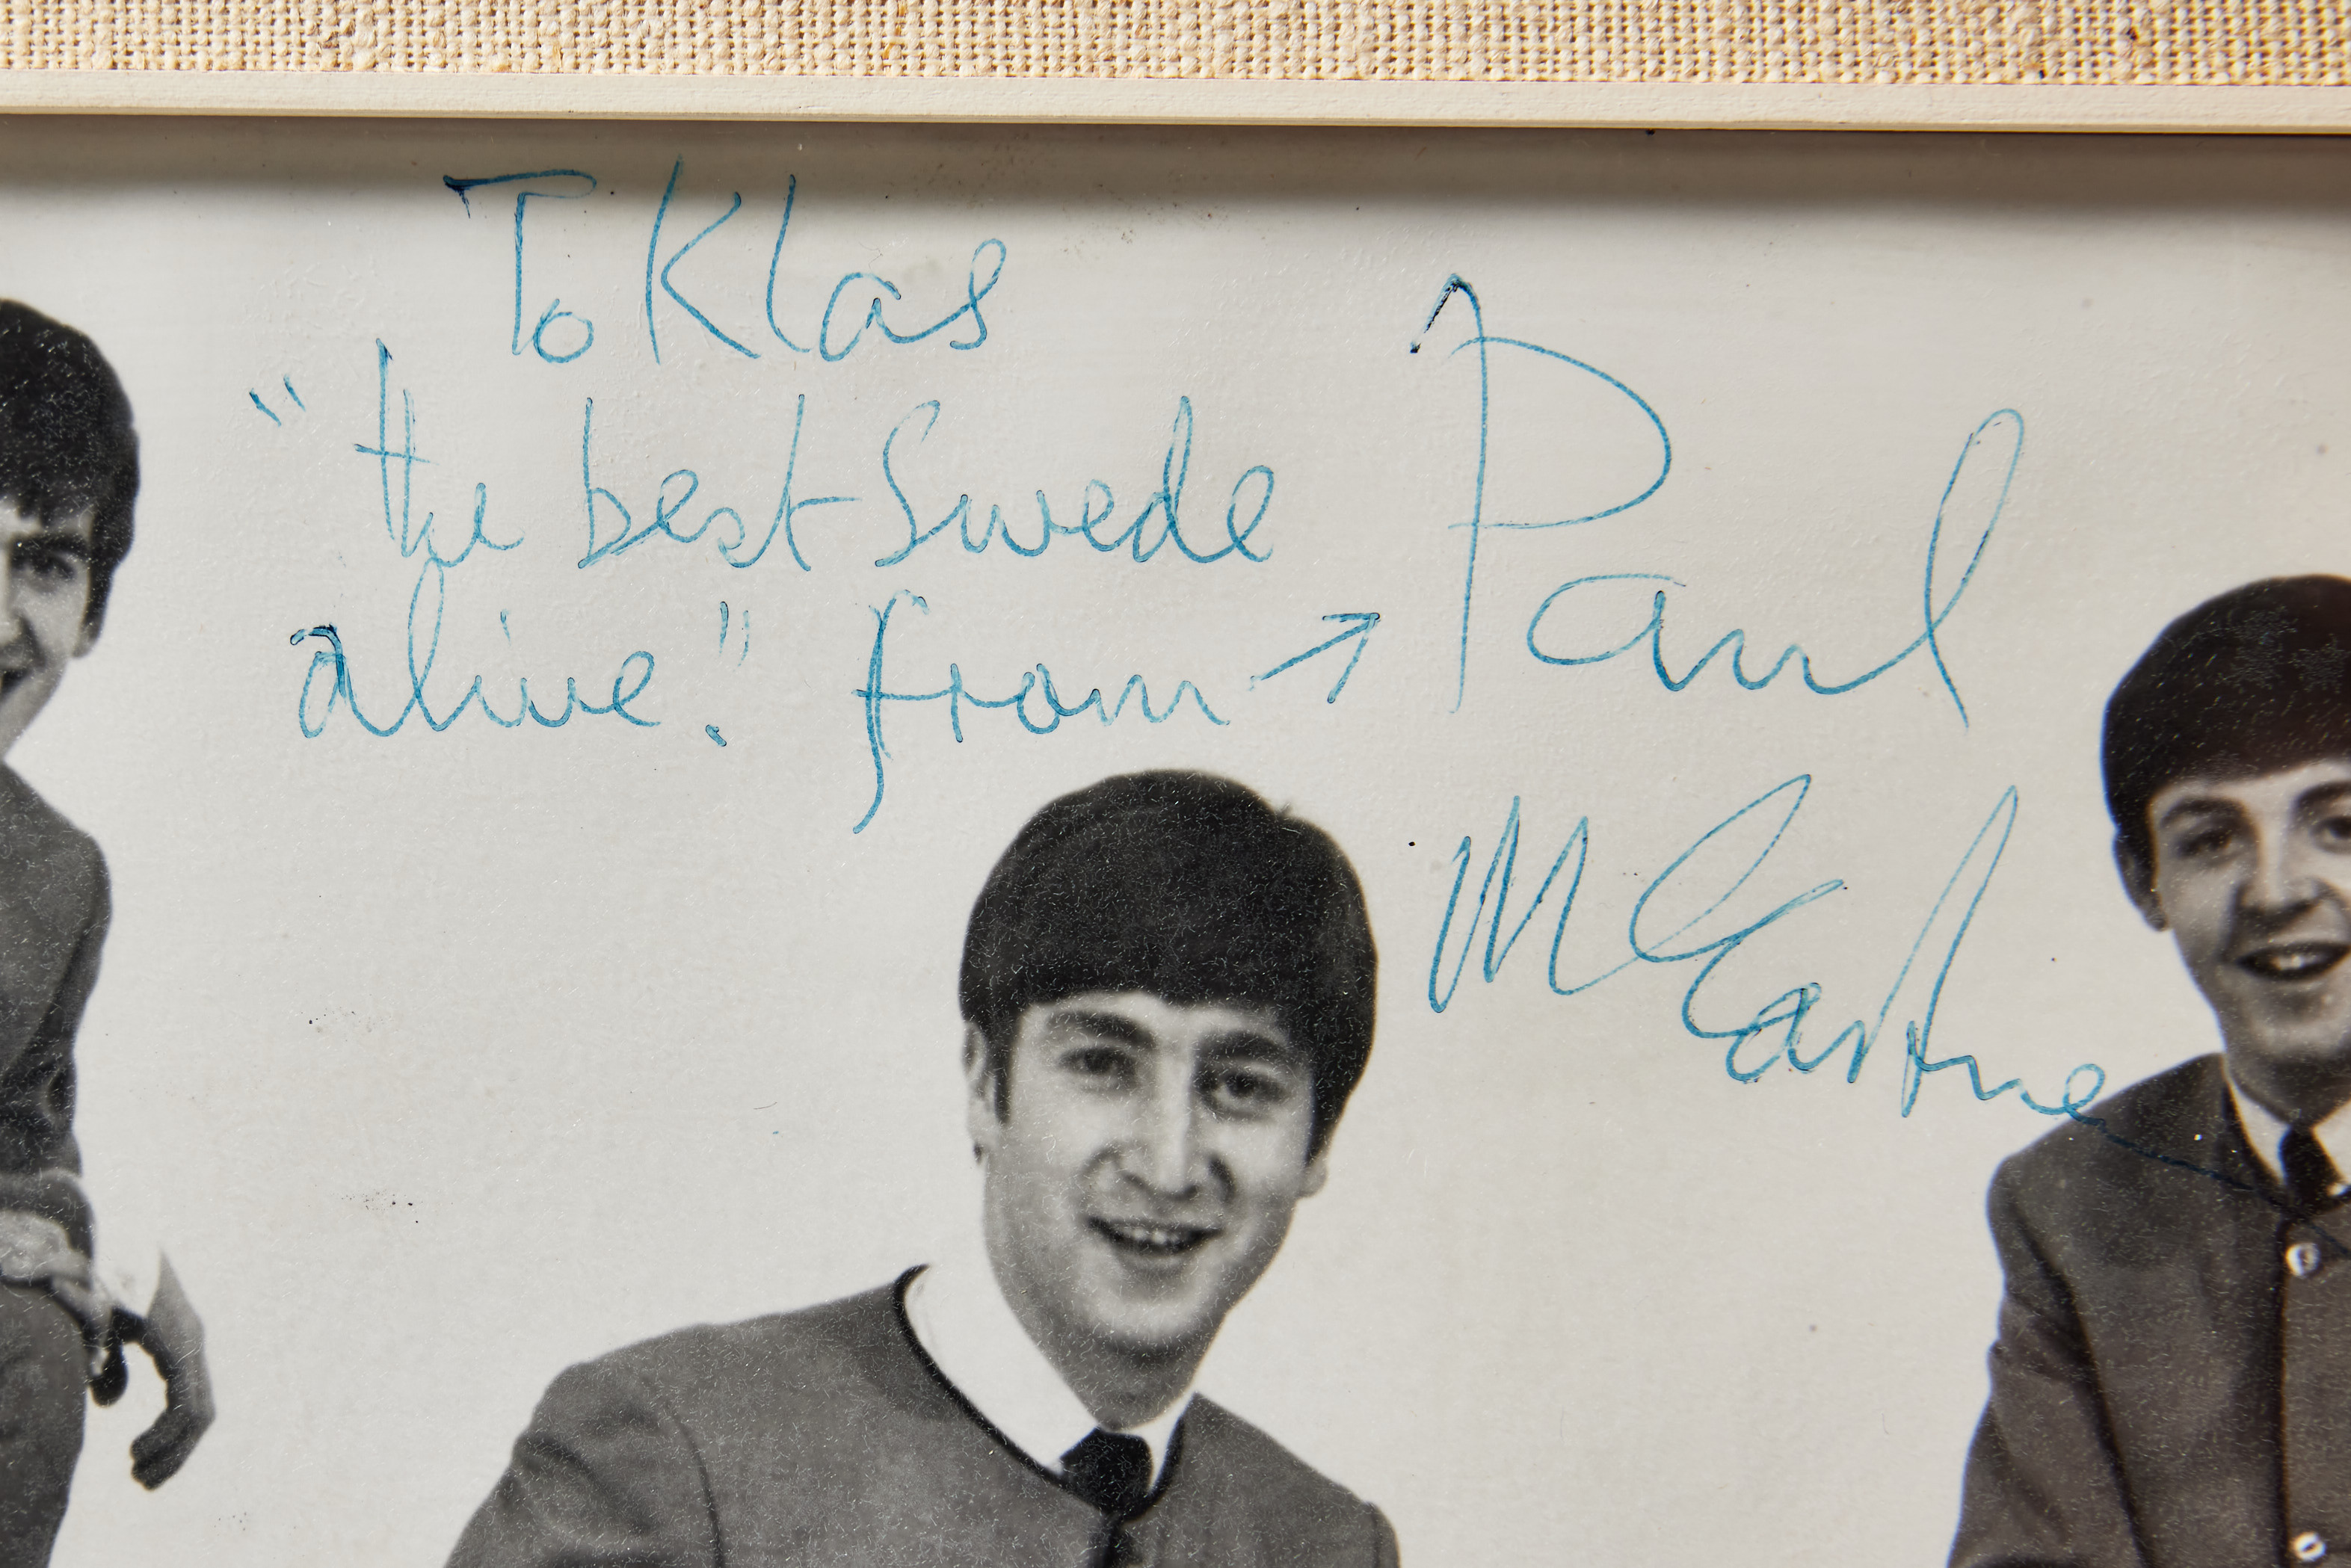 To Klas
"the best Swede
alive." from → Paul
McCartney